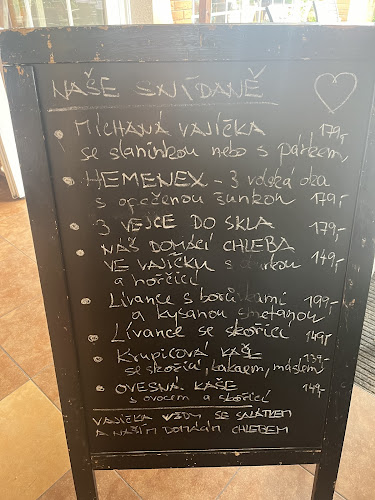 NAŠE SNÍDANĚ
MÍCHANÁ VAJÍČKA 179,-
se slaninkou nebo s párkem
HEMENEX - 3 volská oka
s opečenou šunkou 179,-
3 VEJCE DO SKLA 179,-
NÁŠ DOMÁCÍ CHLEBA
VE VAJÍČKU s 149,-
a hořčicí
Lívance s borůvkami 199,-
a kysanou smetanou
Lívance se skořicí 149,-
KRUPICOVÁ KAŠE 139,-
se skořicí, kakaem, máslem
OVESNÁ KAŠE 149,-
s ovocem a skořicí
VAJÍČKA VŽDY SE SALÁTKEM
A NAŠÍM DOMÁCÍM CHLEBEM